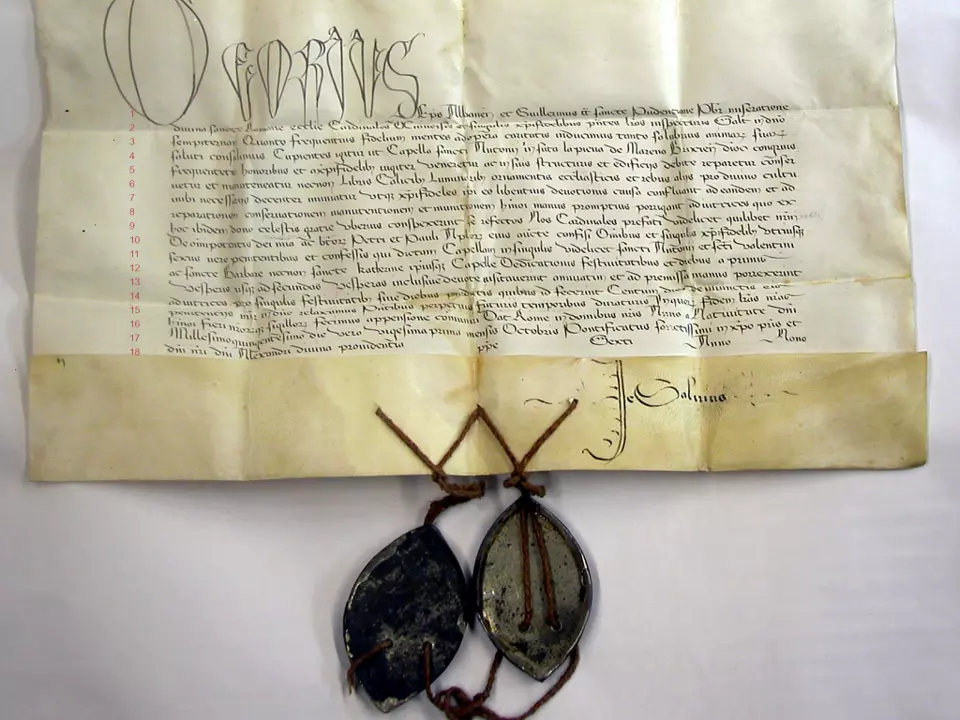 OEORIUS
1 Ep̄o Albanen̄ et Guillermus tt̄ sancte Pudentiane Pb̄r miseratione
2 divina sancte Romane eccl̄ie Cardinales Universis et singulis xp̄ifidelibus p̄n̄tes l̄ras inspecturis Sal̄t in dn̄o
3 sempiternam Quanto frequentius fidelium mentes ad opera caritatis inducimus tanto salubrius animar̄ suar̄
4 saluti consulimus Cupientes igitur ut Capella sancti Antonii in sita la pieva de Mareno Brixien̄ dioc̄ congruis
5 frequentetr̄ honoribus et a xp̄ifidelib⁊ iugiter veneretur ac in suis structuris et edificiis debite reparetur conser
6 vetur et manuteneatur necnon Libris Calicib⁊ Luminarib⁊ ornamentis ecclesiasticis et rebus aliis pro divino cultu
7 inibi necessariis decenter muniatur Utq⁊ xp̄ifideles ip̄i eo libentius devotionis causa confluant ad eandem et ad
8 reparationem conservationem manutentionem et munitionem hm̄oi manus promptius porrigant adiutrices quo ex
9 hoc ibidem dono celestis gratie uberius conspexerint se refectos Nos Cardinales prefati videlicet quilibet nr̄m
10 De om̄ipotentis dei mia ac b̄tor̄ Petri et Pauli Ap̄lor̄ eius auc̄te confisi Om̄ibus et singulis xp̄ifidelib⁊ utriusq⁊
11 sexus vere penitentibus et confessis qui dictam Capellam in singulis videlicet sancti Antonii et sc̄ti Valentini
12 ac sancte Barbare necnon sancte Katherine ipiusq⁊ Capelle Dedicationis festivitatibus et diebus a primis
13 Vesperis usq⁊ ad secundas Vesperas inclusive devote visitaverint annuatim et ad premissa manus porrexerint
14 adiutrices pro singulis festivitatib⁊ sive diebus p̄dictis quibus id fecerint Centum dies de iniunctis eis
15 penitentiis mīr in dn̄o relaxamus p̄ntibus perpetuis futuris temporibus duraturis In quor̄ fidem l̄ras n̄ras
16 hm̄oi fieri n̄rorq⁊ sigillor̄ fecimus appensione com̄uniri Dat̄ Rome in domibus n̄ris Anno a Nativitate dn̄i
17 Millesimoquingentesimo die vero vigesimaprima mensis Octobris Pontificatus sanctissimi in xp̄o p̄ris et
18 dn̄i n̄ri dn̄i Alexandri divina providentia pp̄e Sexti Anno Nono
Je Salinus